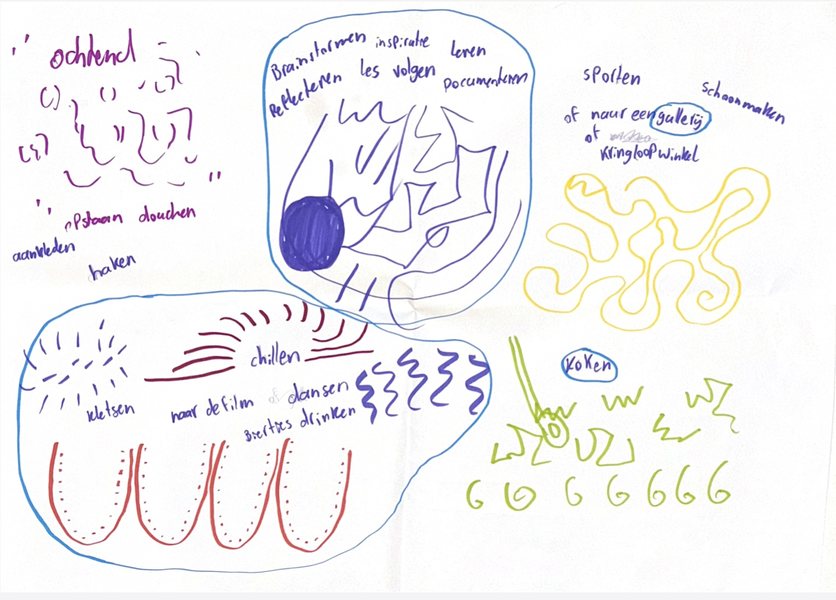 ochtend
opstaan douchen
aankleden
haken
Brainstormen inspiratie leren
Reflecteren les volgen documenteren
sporten
schoonmaken
of naar een gallerij
of
Kringloopwinkel
chillen
kletsen
naar de film of dansen
Biertjes drinken
Koken